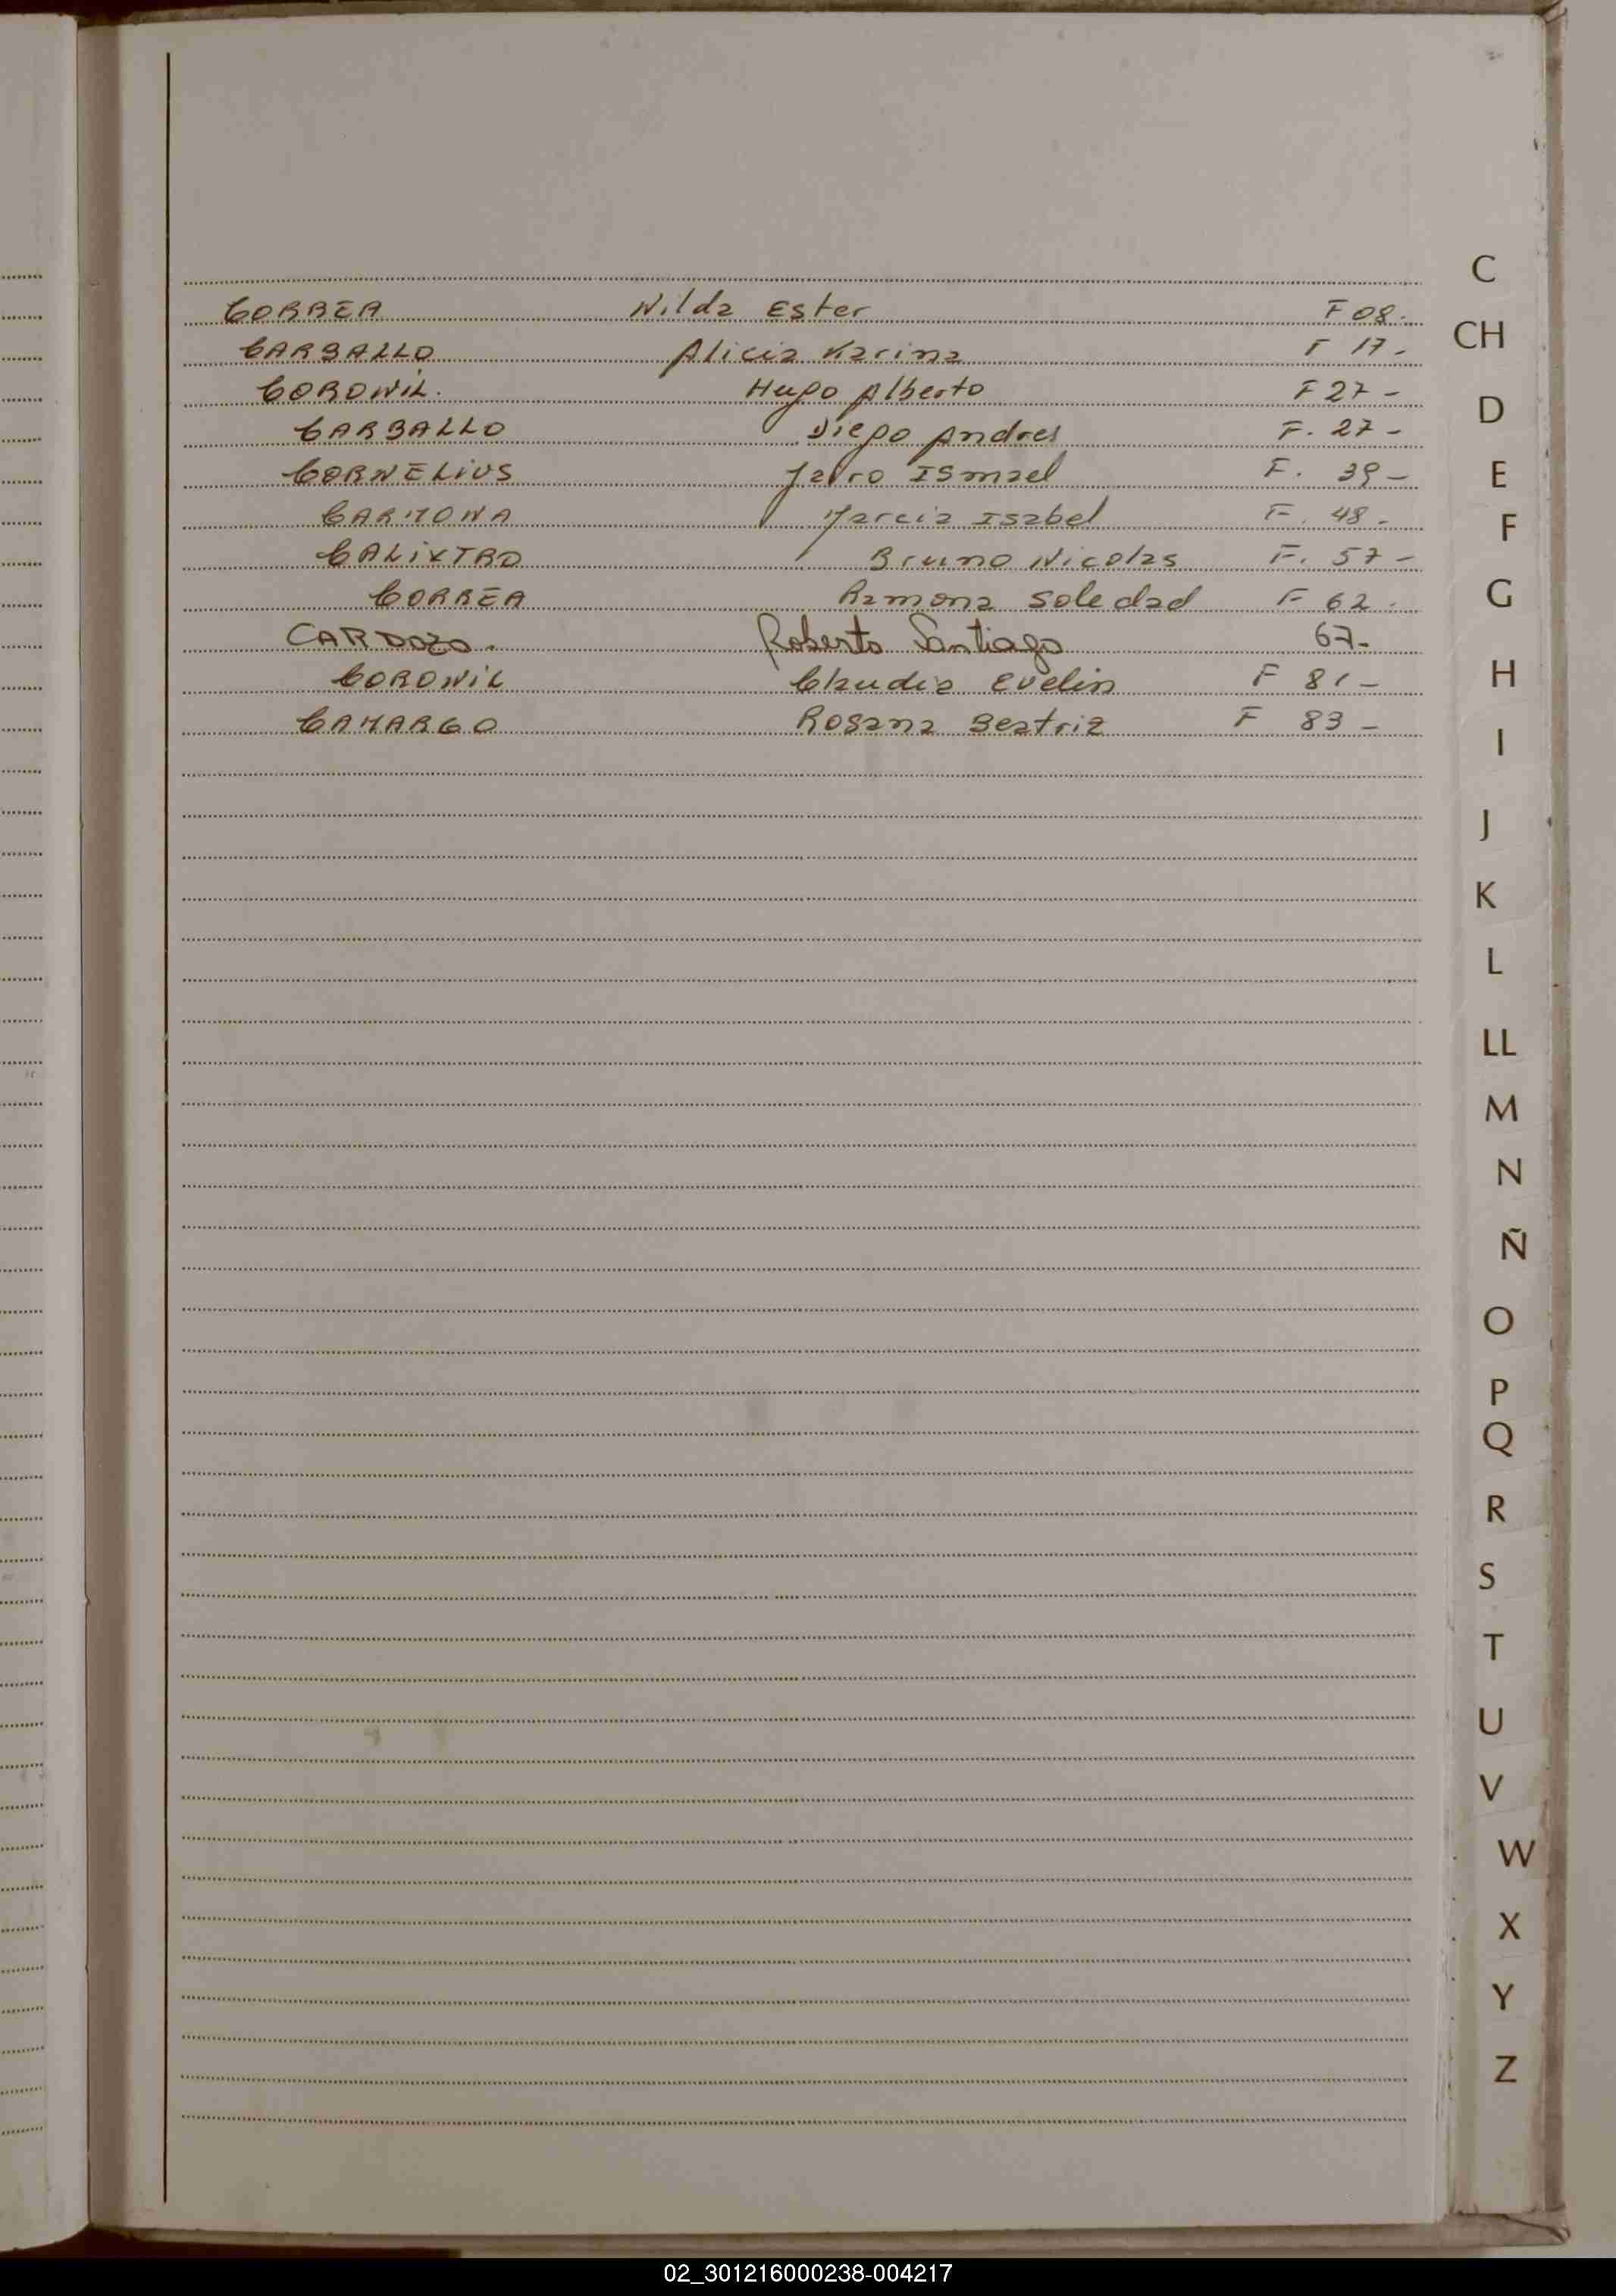 CORREA Nilda Ester F 08.
CARBALLO Alicia Karina F 17-
CORONIL. Hugo Alberto F 27-
CARBALLO Diego Andres F. 27-
CORNELIUS Jairo ISmael F. 39-
CARMONA Marcia Isabel F. 48-
CALIXTRO Bruno Nicolas F. 57-
CORREA Ramona Soledad F 62.
CARDOZO. Roberto Santiago 67-
CORONIL Claudia Evelin F 81-
CAMARGO Rosana Beatriz F 83-
C
CH
D
E
F
G
H
I
J
K
L
LL
M
N
Ñ
O
P
Q
R
S
T
U
V
W
X
Y
Z
02_301216000238-004217